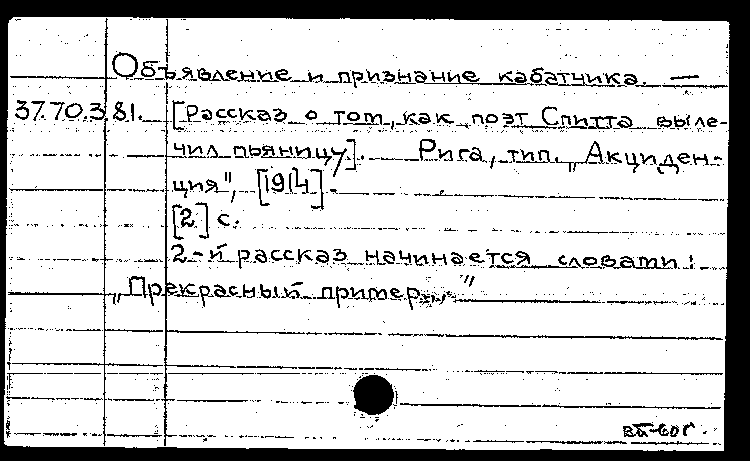 Объявление и признание кабатчика. —
37.70.3.81. [Рассказ о том, как поэт Спитта выле-
чил пьяницу]. Рига, тип. „Акциден-
ция", [1914].
[2] с.
2-й рассказ начинается словами:
„Прекрасный пример..."